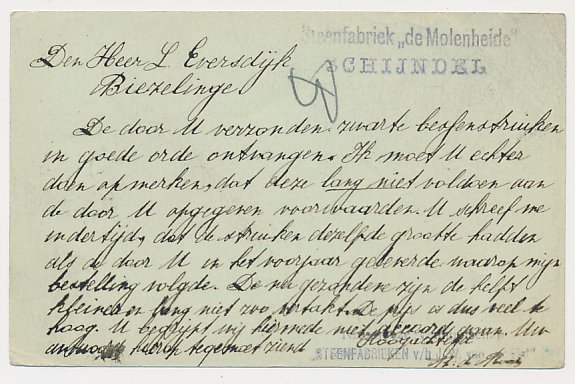 Steenfabriek „de Molenheide"
SCHIJNDEL
Den Heer L Eversdijk
Biezelinge
De door U verzonden zwarte bessenstruiken
in goede orde ontvangen. Ik moet U echter
doen opmerken, dat deze lang niet voldoen aan
de door U opgegeven voorwaarden. U schreef me
indertijd, dat de struiken dezelfde grootte hadden
als de door U in het voorjaar geleverde waarop mijn
bestelling volgde. De nu gezondene zijn de helft
kleiner en lang niet zoo vertakt. De prijs is dus veel te
hoog. U begrijpt wij hiermede niet accoord gaan. Uw
antwoord hierop tegemoet ziend Hoogachtend
STEENFABRIEKEN v/h J.W. van